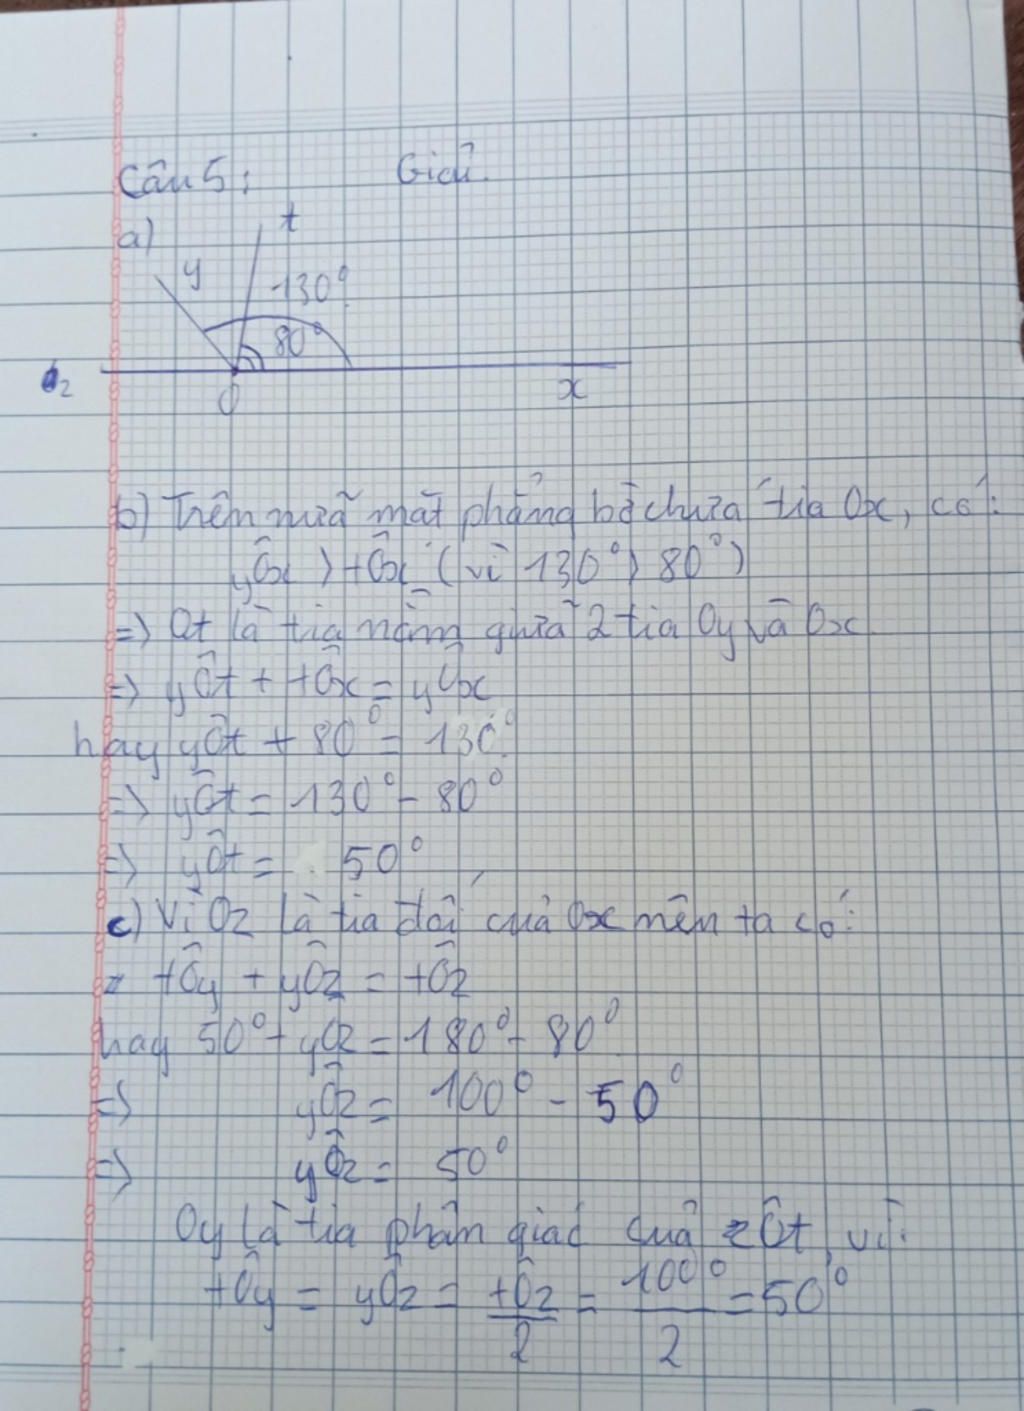 Câu 5: Giải.
a)
t
y
130°
80°
z
O
x
b) Trên nửa mặt phẳng bờ chứa tia Ox, có:
yÔx > tÔx (vì 130° > 80°)
=> Ot là tia nằm giữa 2 tia Oy và Ox
=> yÔt + tÔx = yÔx
hay yÔt + 80° = 130°.
=> yÔt = 130° - 80°
=> yÔt = 50°
c) Vì Oz là tia đối của Ox nên ta có:
tÔy + yÔz = tÔz
hay 50° + yÔz = 180° - 80°
=> yÔz = 100° - 50°
=> yÔz = 50°
Oy là tia phân giác của zÔt, vì:
tÔy = yÔz = tÔz/2 = 100°/2 = 50°